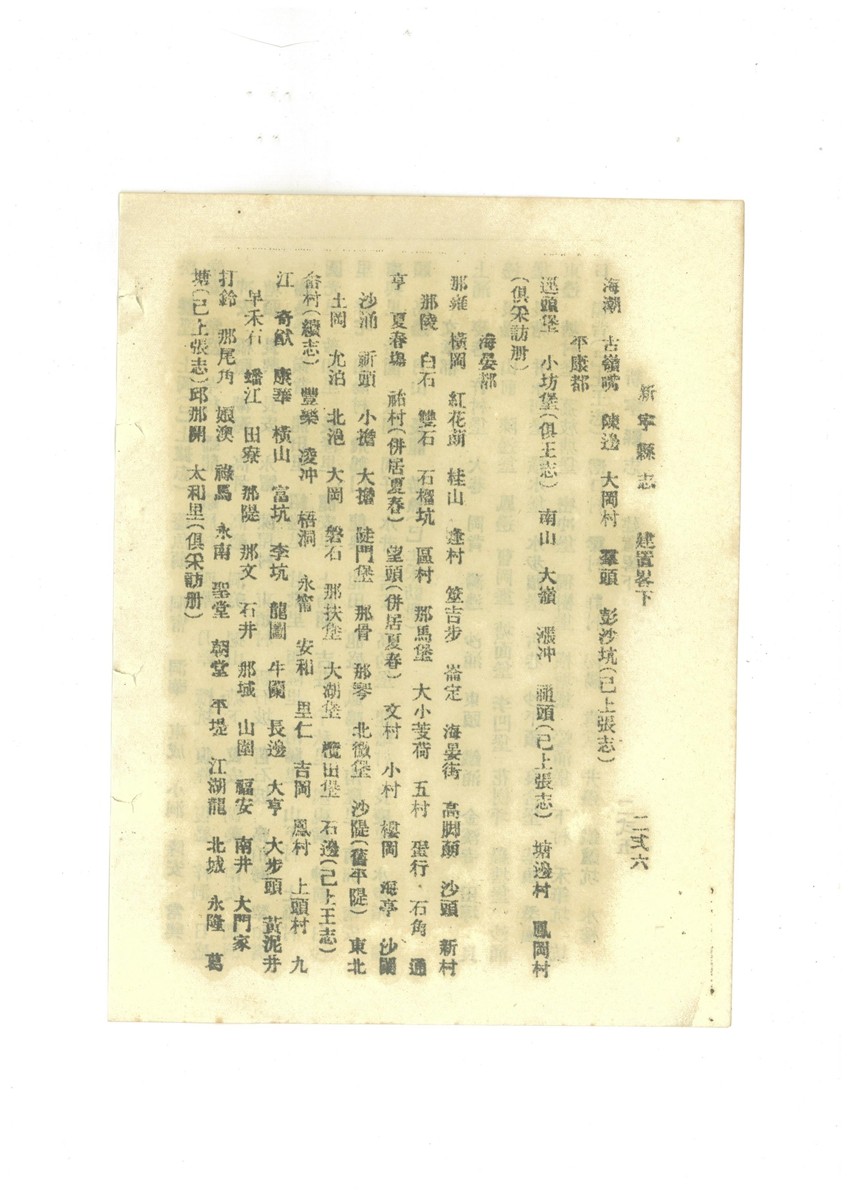 新寧縣志 建置畧下 二六六
海潮 古嶺嘴 陳邊 大岡村 羣頭 彭沙坑(已上張志)
平康都
逕頭堡 小坊堡(俱王志) 南山 大嶺 漲冲 頭(已上張志) 塘邊村 鳳岡村
(俱采訪册)
海晏都
那雍 橫岡 紅花蓢 桂山 逢村 筮吉步 崙定 海晏街 高脚蓢 沙頭 新村
那陵 白石 雙石 石榴坑 區村 那馬堡 大小芰荷 五村 蛋行 石角 通
亨 夏春塲 祐村(併居夏春) 望頭(併居夏春) 文村 小村 樓岡 海亭 沙闌
沙涌 新頭 小擔 大擔 陡門堡 那骨 那琴 北徵堡 沙隄(舊平隄) 東北
土岡 尤泊 北洍 大岡 磐石 那扶堡 大湖堡 欖田堡 石邊(已上王志)
畬村(續志) 豐樂 凌冲 梧洞 永甯 安和 里仁 吉岡 鳳村 上頭村 九
江 奇猷 康華 橫山 富坑 李坑 龍圖 牛闌 長邊 大亨 大步頭 黃泥井
早禾石 蟠江 田寮 那隄 那文 石井 那城 山圍 福安 南井 大門家
打鈴 那尾角 娘澳 祿馬 永南 聖堂 朝堂 平堤 江湖龍 北城 永隆 葛
塘(已上張志)邱那開 太和里(俱采訪册)